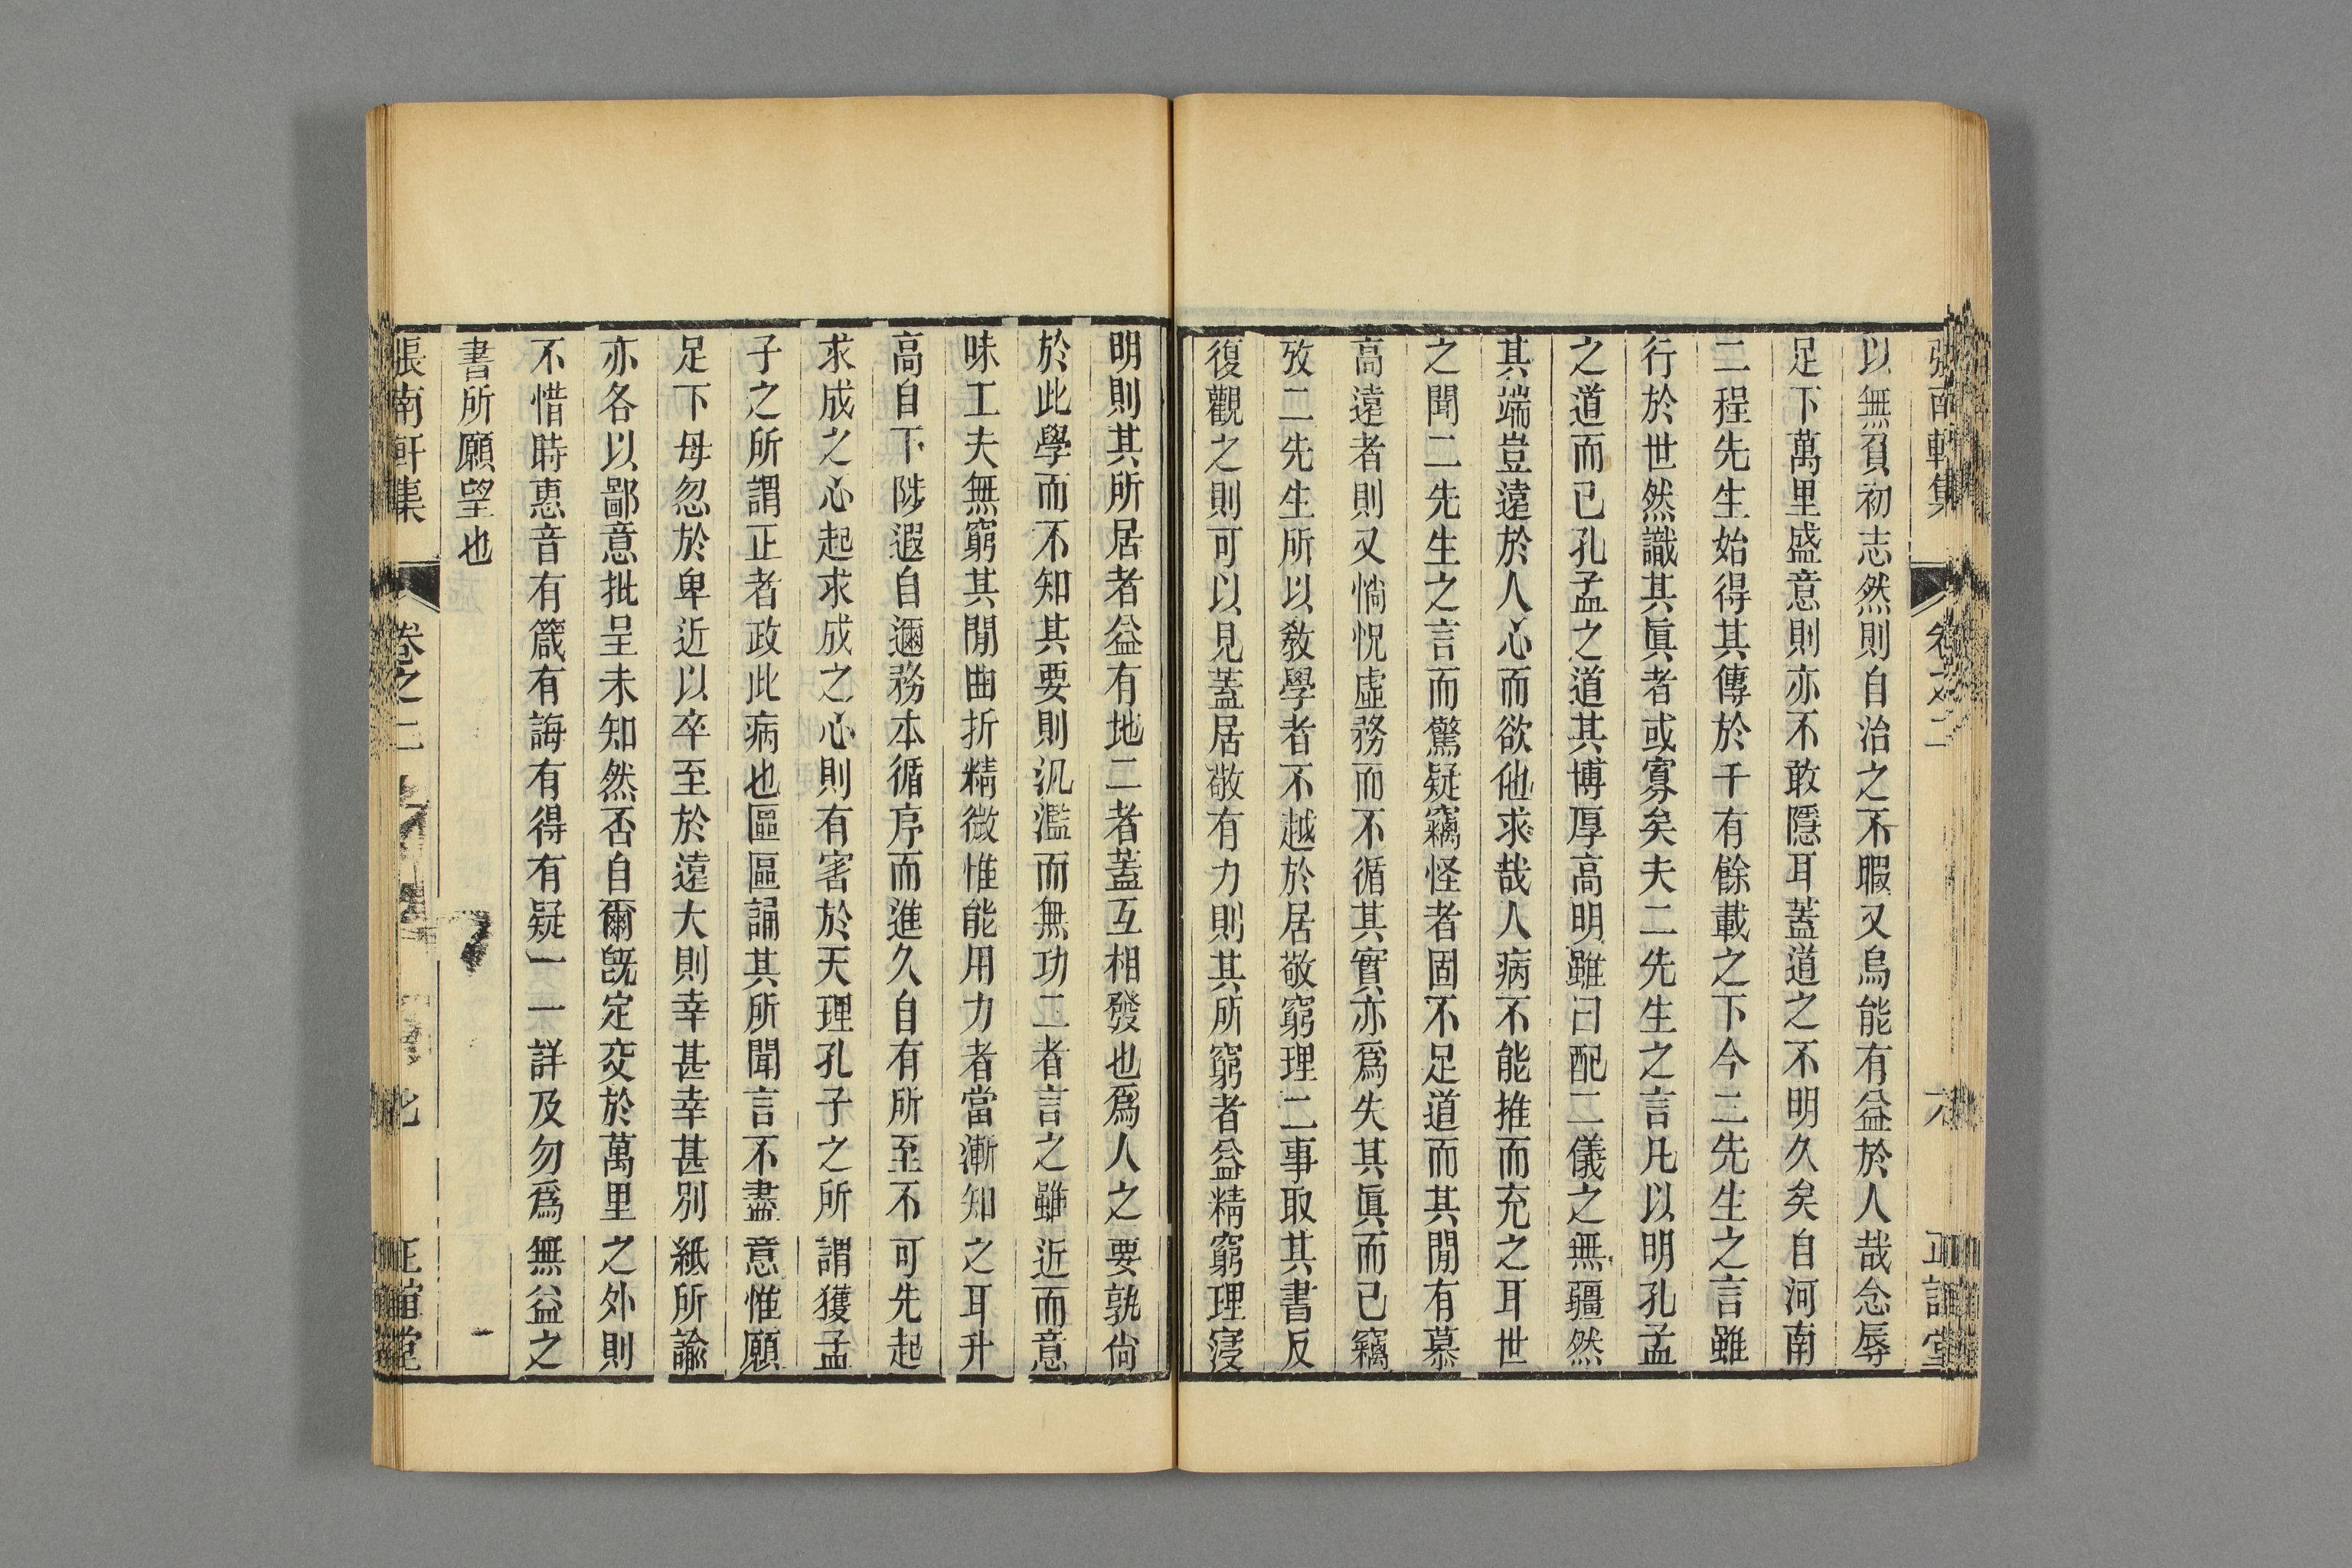 張南軒集 卷之二 六 正誼堂
以無負初志然則自治之不暇又烏能有益於人哉念辱
足下萬里盛意則亦不敢隱耳蓋道之不明久矣自河南
二程先生始得其傳於千有餘載之下今二先生之言雖
行於世然識其眞者或寡矣夫二先生之言凡以明孔孟
之道而已孔孟之道其博厚高明雖曰配二儀之無疆然
其端豈遠於人心而欲他求哉人病不能推而充之耳世
之聞二先生之言而驚疑竊怪者固不足道而其閒有慕
高遠者則又惝怳虛務而不循其實亦爲失其眞而已竊
攷二先生所以敎學者不越於居敬窮理二事取其書反
復觀之則可以見蓋居敬有力則其所窮者益精窮理寖
明則其所居者益有地二者蓋互相發也爲人之要孰尙
於此學而不知其要則汎濫而無功二者言之雖近而意
味工夫無窮其閒曲折精微惟能用力者當漸知之耳升
高自下陟遐自邇務本循序而進久自有所至不可先起
求成之心起求成之心則有害於天理孔子之所謂獲孟
子之所謂正者政此病也區區誦其所聞言不盡意惟願
足下毋忽於卑近以卒至於遠大則幸甚幸甚別紙所諭
亦各以鄙意批呈未知然否自爾旣定交於萬里之外則
不惜時惠音有箴有誨有得有疑一一詳及勿爲無益之
書所願望也
張南軒集 卷之二 七 正誼堂